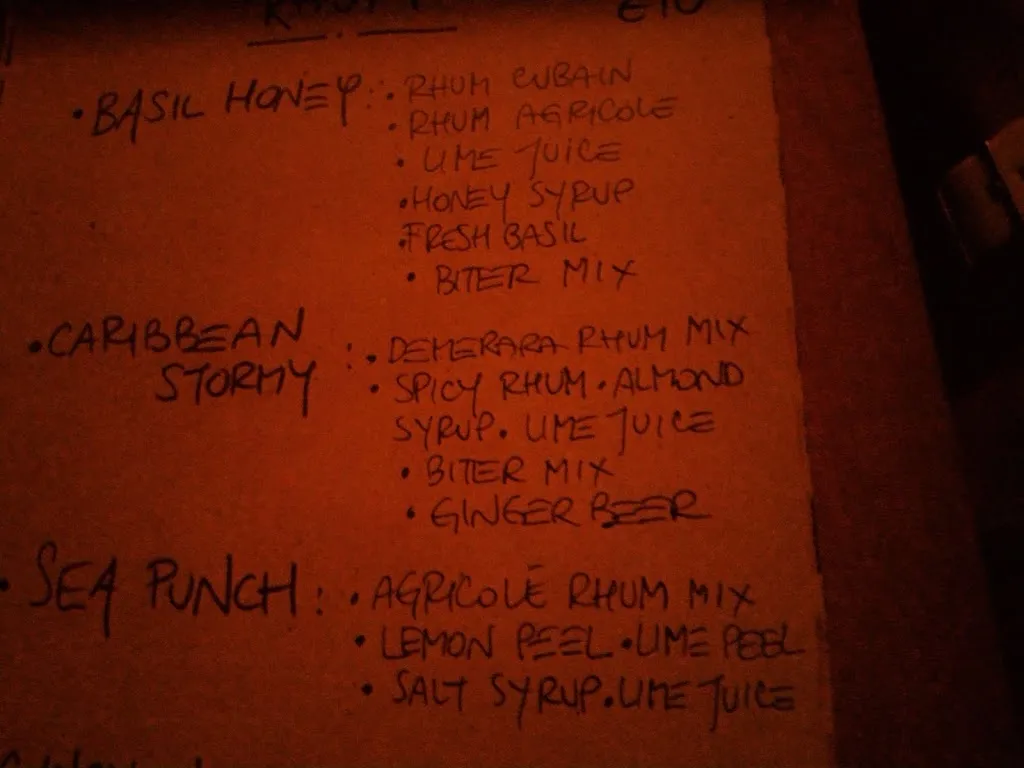 €10
• BASIL HONEY : • RHUM CUBAIN
• RHUM AGRICOLE
• LIME JUICE
• HONEY SYRUP
• FRESH BASIL
• BITER MIX
• CARIBBEAN STORMY : • DEMERARA RHUM MIX
• SPICY RHUM • ALMOND
SYRUP • LIME JUICE
• BITER MIX
• GINGER BEER
• SEA PUNCH : • AGRICOLE RHUM MIX
• LEMON PEEL • LIME PEEL
• SALT SYRUP • LIME JUICE